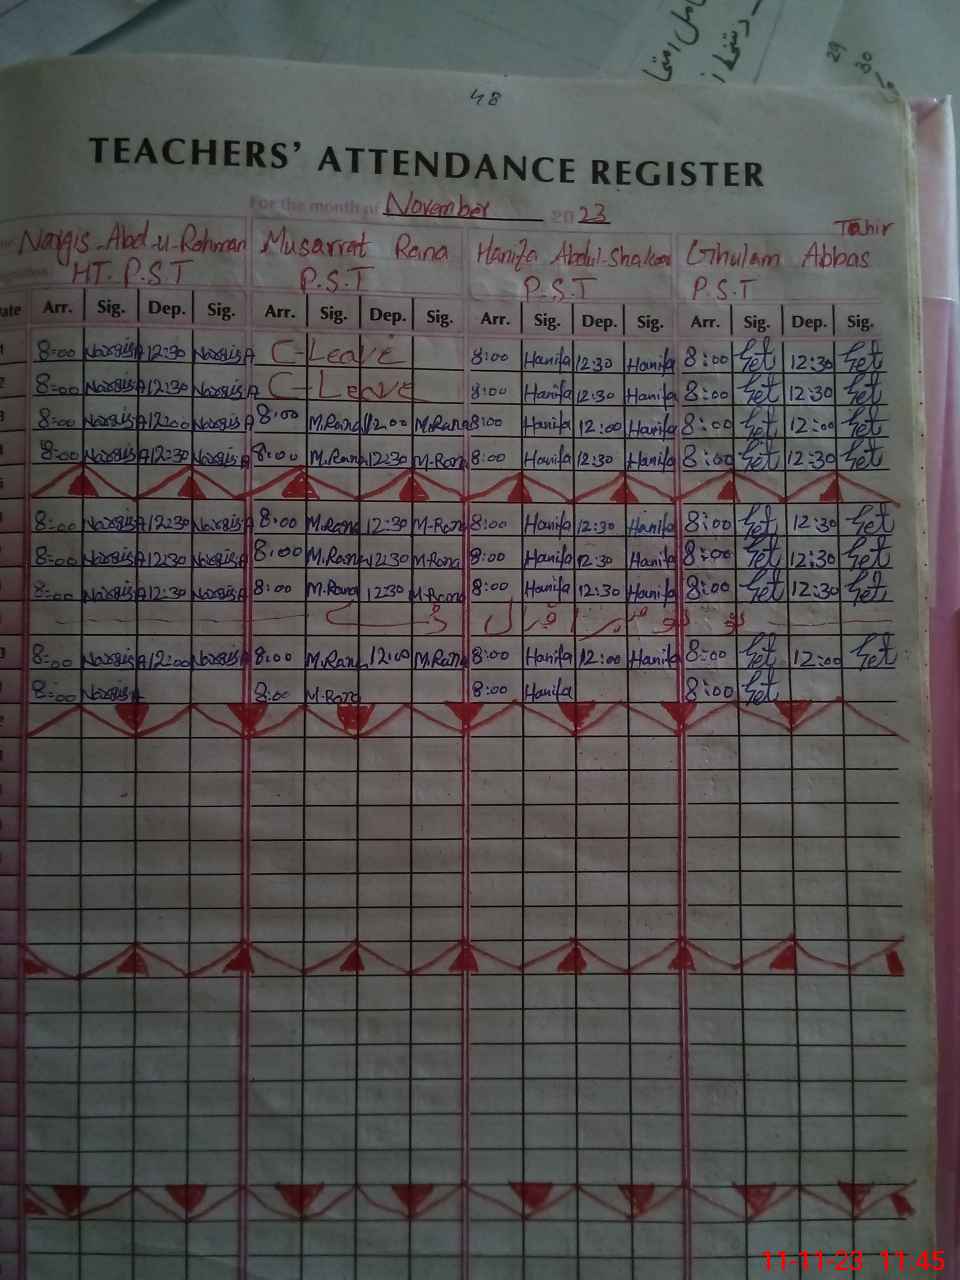 48
TEACHERS' ATTENDANCE REGISTER
For the month of November 2023
Nargis Abd-u-Rehman Musarrat Rana Hanifa Abdul-Shakoor Ghulam Abbas Tahir
HT. P.S.T P.S.T P.S.T P.S.T
Date Arr. Sig. Dep. Sig. Arr. Sig. Dep. Sig. Arr. Sig. Dep. Sig. Arr. Sig. Dep. Sig.
1 8:00 NargisA 12:30 NargisA C-Leave 8:00 Hanifa 12:30 Hanifa 8:00 12:30
2 8:00 NargisA 12:30 NargisA C-Leave 8:00 Hanifa 12:30 Hanifa 8:00 12:30
3 8:00 NargisA 12:00 NargisA 8:00 M.Rana 12:00 M.Rana 8:00 Hanifa 12:00 Hanifa 8:00 12:00
4 8:00 NargisA 12:30 NargisA 8:00 M.Rana 12:30 M-Rana 8:00 Hanifa 12:30 Hanifa 8:00 12:30
5
8:00 NargisA 12:30 NargisA 8:00 M.Rana 12:30 M-Rana 8:00 Hanifa 12:30 Hanifa 8:00 12:30
8:00 NargisA 12:30 NargisA 8:00 M.Rana 12:30 M.Rana 8:00 Hanifa 12:30 Hanifa 8:00 12:30
8:00 NargisA 12:30 NargisA 8:00 M.Rana 12:30 M.Rana 8:00 Hanifa 12:30 Hanifa 8:00 12:30
8:00 NargisA 12:00 NargisA 8:00 M.Rana 12:00 M.Rana 8:00 Hanifa 12:00 Hanifa 8:00 12:00
8:00 NargisA 8:00 M-Rana 8:00 Hanifa 8:00
11-11-23 11:45